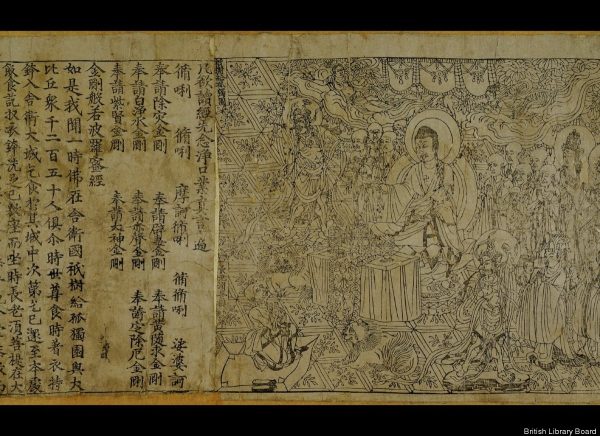 凡欲讀經先念淨口業真言一遍
脩唎 脩唎 摩訶脩唎 脩脩唎 娑婆訶
奉請除灾金剛 奉請辟毒金剛 奉請黃隨求金剛
奉請白淨水金剛 奉請赤聲金剛 奉請定除厄金剛
奉請紫賢金剛 奉請大神金剛
金剛般若波羅蜜經
如是我聞一時佛在舍衛國祇樹給孤獨園與大
比丘衆千二百五十人俱尒時世尊食時著衣持
鉢入舍衛大城乞食於其城中次第乞已還至本處
飯食訖收衣鉢洗足已敷座而坐時長老須菩提在大
British Library Board